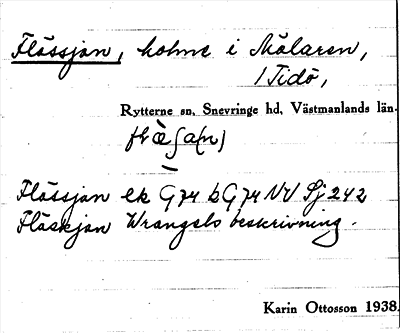 Flässjan, holme i Mälaren,
/ Tidö,
Rytterne sn, Snevringe hd, Västmanlands län.
Flässjan ek G74 b G74 NV Sj 242
Fläskjan Wrangels beskrivning.
Karin Ottosson 1938.